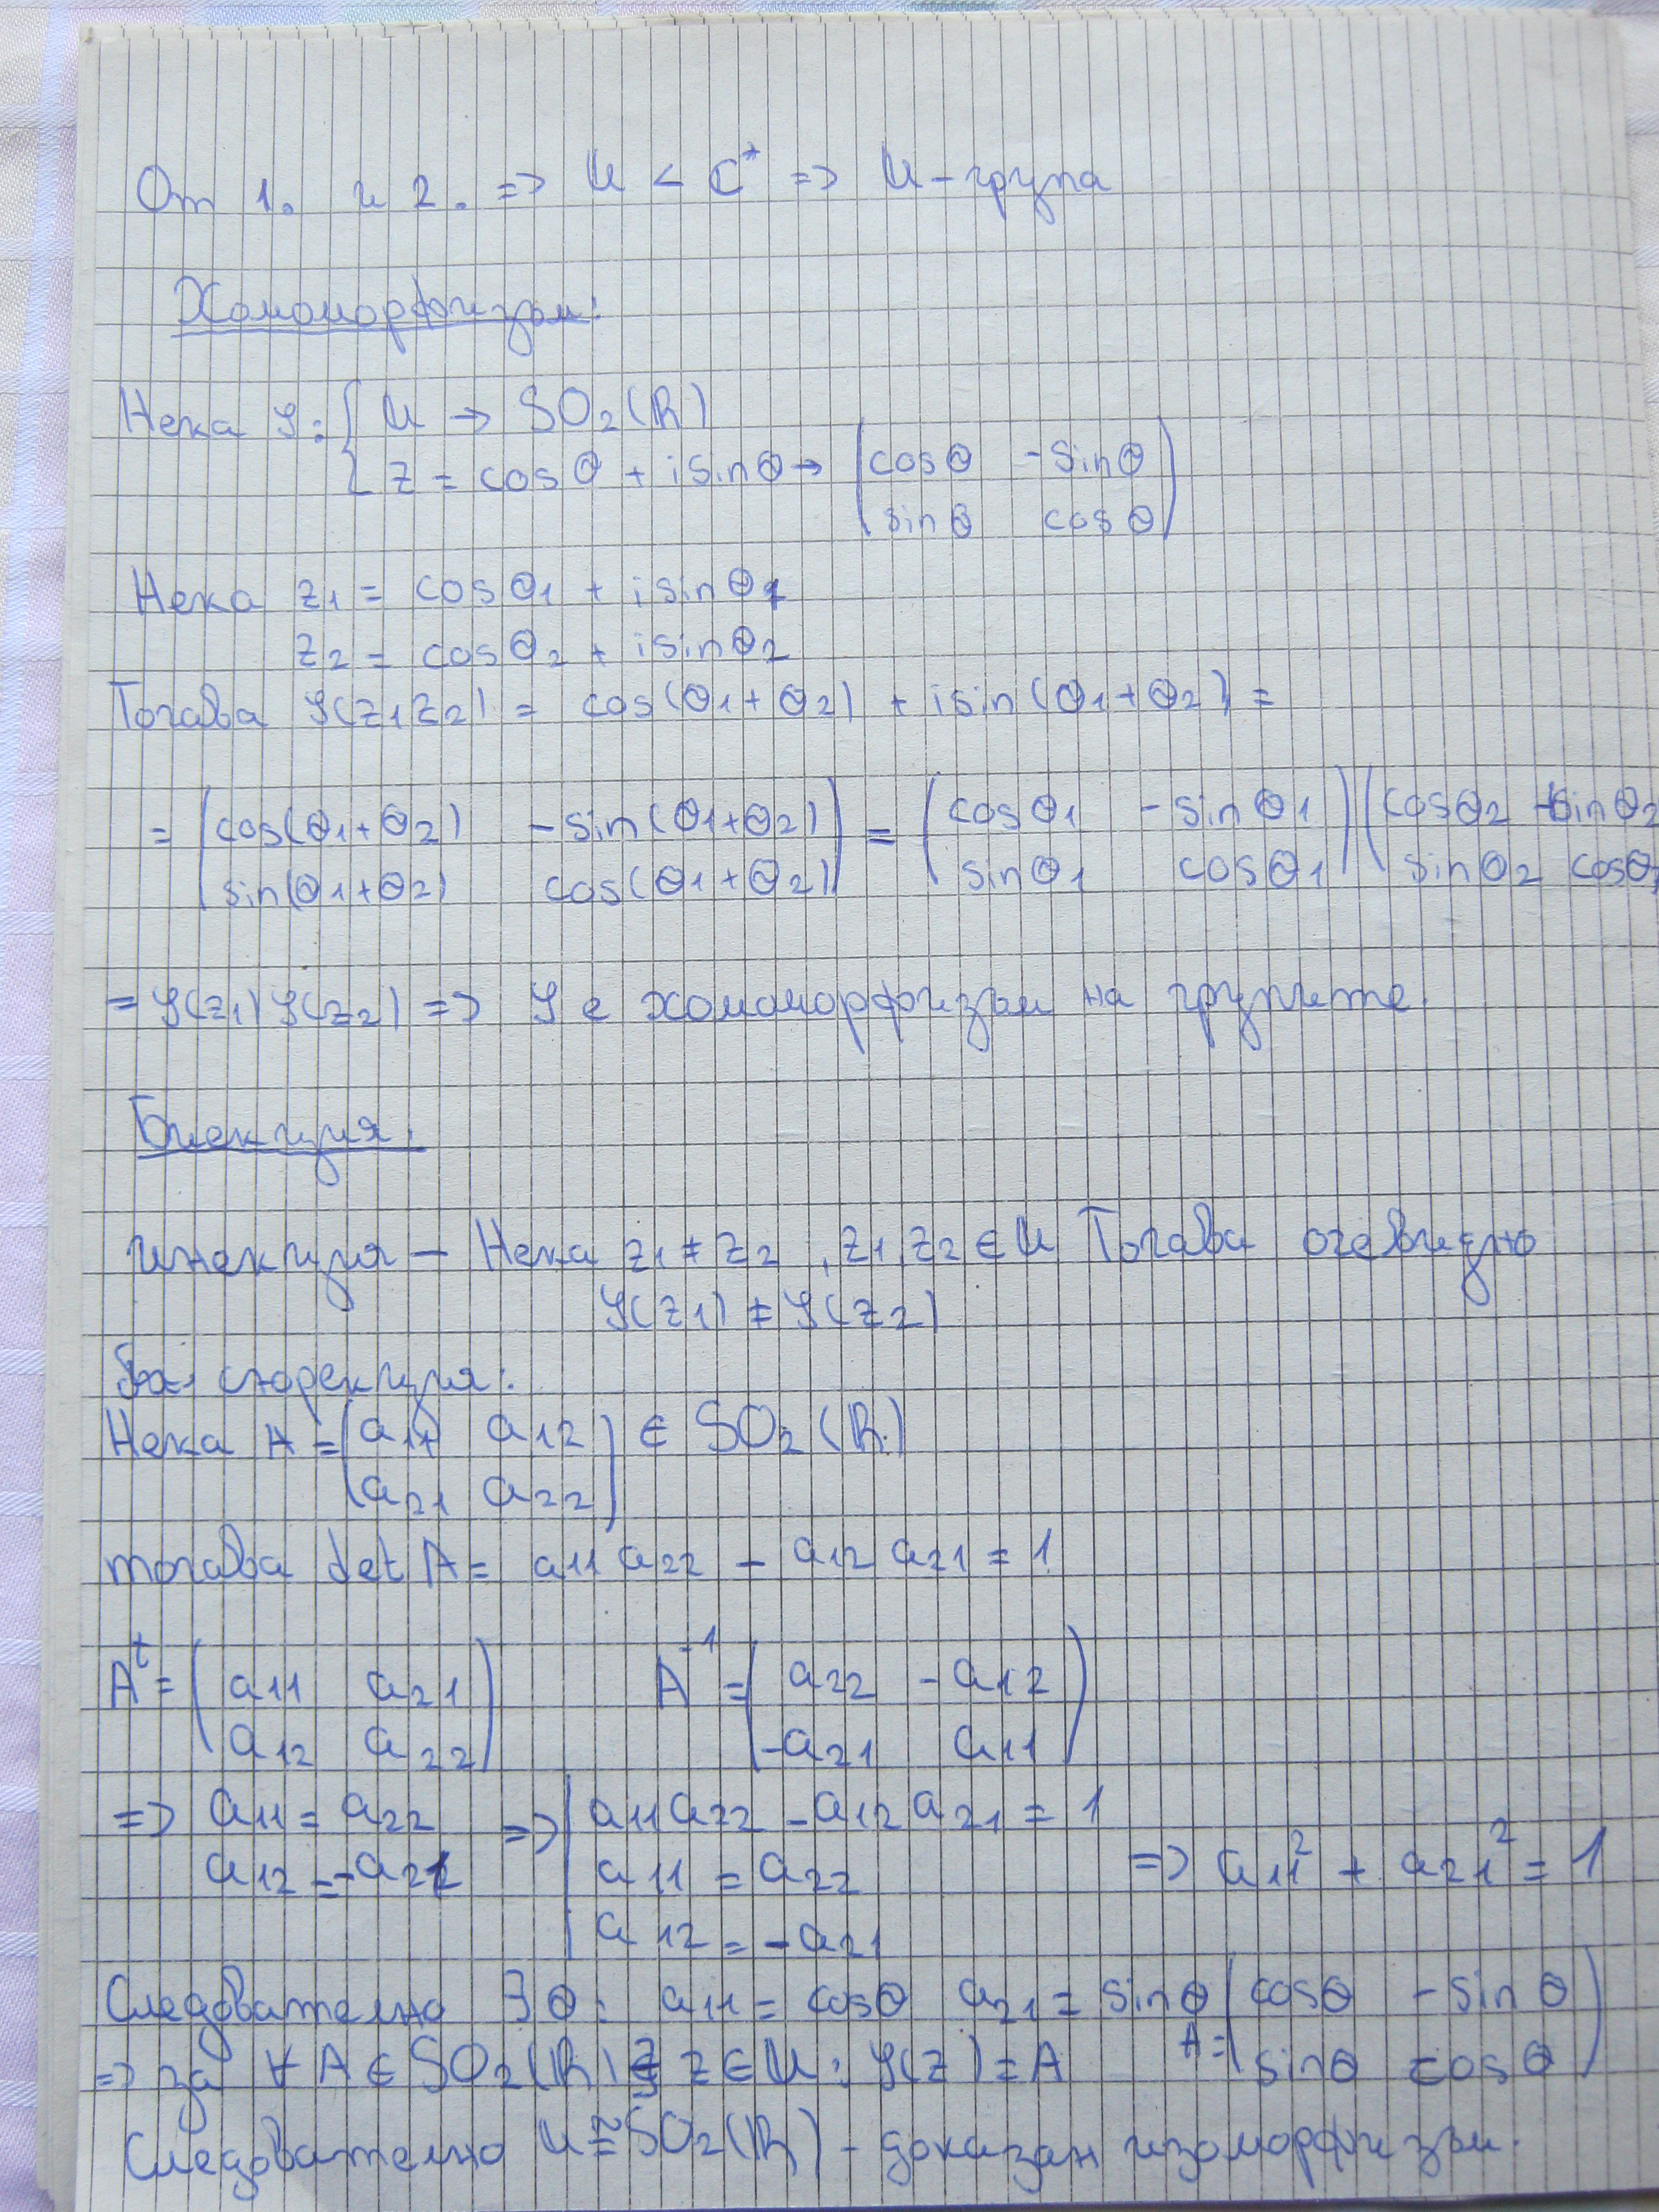 От 1. и 2. => U < C* => U - група
Хомоморфизъм:
Нека φ: { U → SO₂(ℝ)
z = cosθ + isinθ → (cosθ -sinθ
sinθ cosθ)
Нека z₁ = cosθ₁ + isinθ₁
z₂ = cosθ₂ + isinθ₂
Тогава φ(z₁z₂) = cos(θ₁+θ₂) + isin(θ₁+θ₂) =
= (cos(θ₁+θ₂) -sin(θ₁+θ₂) = (cosθ₁ -sinθ₁ (cosθ₂ -sinθ₂
sin(θ₁+θ₂) cos(θ₁+θ₂)) sinθ₁ cosθ₁) sinθ₂ cosθ₂
= φ(z₁)φ(z₂) => φ е хомоморфизъм на групите.
Биекция:
инекция - Нека z₁ ≠ z₂, z₁,z₂ ∈ U Тогава очевидно
φ(z₁) ≠ φ(z₂)
сюрекция:
Нека A = (a₁₁ a₁₂ ∈ SO₂(ℝ)
a₂₁ a₂₂)
тогава det A = a₁₁a₂₂ - a₁₂a₂₁ = 1
Aᵗ = (a₁₁ a₂₁ A⁻¹ = (a₂₂ -a₁₂
a₁₂ a₂₂) -a₂₁ a₁₁)
=> a₁₁ = a₂₂ => | a₁₁a₂₂ - a₁₂a₂₁ = 1
a₁₂ = -a₂₁ a₁₁ = a₂₂ => a₁₁² + a₂₁² = 1
a₁₂ = -a₂₁
Следователно ∃ θ: a₁₁ = cosθ a₂₁ = sinθ (cosθ -sinθ
=> за ∀ A ∈ SO₂(ℝ) ∃ z ∈ U: φ(z) = A A = sinθ cosθ)
Следователно U ≅ SO₂(ℝ) - доказан изоморфизъм.